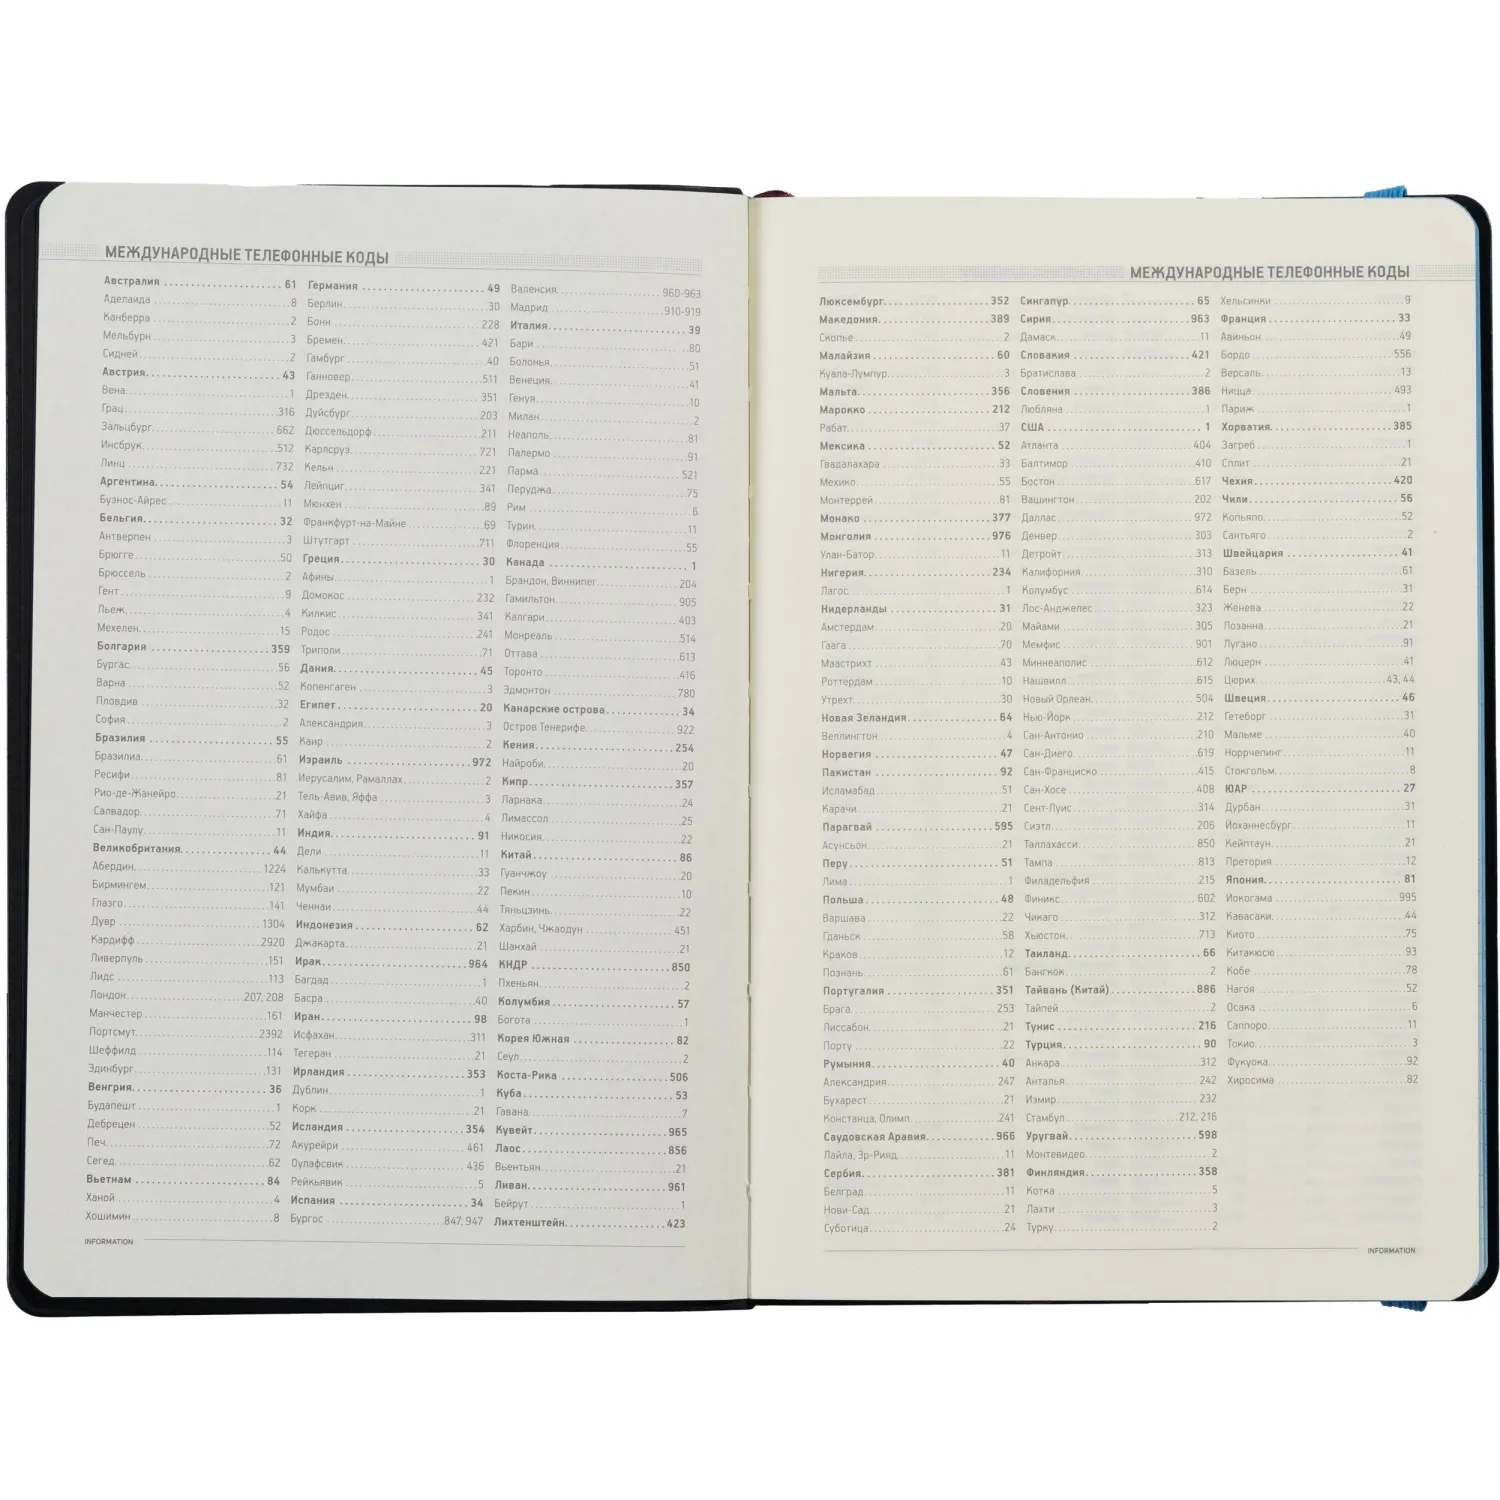 МЕЖДУНАРОДНЫЕ ТЕЛЕФОННЫЕ КОДЫ
Австралия 61
Аделаида 8
Канберра 2
Мельбурн 3
Сидней 2
Австрия 43
Вена 1
Грац 316
Зальцбург 662
Инсбрук 512
Линц 732
Аргентина 54
Буэнос-Айрес 11
Бельгия 32
Антверпен 3
Брюгге 50
Брюссель 2
Гент 9
Льеж 4
Мехелен 15
Болгария 359
Бургас 56
Варна 52
Пловдив 32
София 2
Бразилия 55
Бразилиа 61
Ресифи 81
Рио-де-Жанейро 21
Салвадор 71
Сан-Паулу 11
Великобритания 44
Абердин 1224
Бирмингем 121
Глазго 141
Дувр 1304
Кардифф 2920
Ливерпуль 151
Лидс 113
Лондон 207, 208
Манчестер 161
Портсмут 2392
Шеффилд 114
Эдинбург 131
Венгрия 36
Будапешт 1
Дебрецен 52
Печ 72
Сегед 62
Вьетнам 84
Ханой 4
Хошимин 8
Германия 49
Берлин 30
Бонн 228
Бремен 421
Гамбург 40
Ганновер 511
Дрезден 351
Дуйсбург 203
Дюссельдорф 211
Карлсруэ 721
Кельн 221
Лейпциг 341
Мюнхен 89
Франкфурт-на-Майне 69
Штутгарт 711
Греция 30
Афины 1
Домокос 232
Килкис 341
Родос 241
Триполи 71
Дания 45
Копенгаген 3
Египет 20
Александрия 3
Каир 2
Израиль 972
Иерусалим, Рамаллах 2
Тель-Авив, Яффа 3
Хайфа 4
Индия 91
Дели 11
Калькутта 33
Мумбаи 22
Ченнаи 44
Индонезия 62
Джакарта 21
Ирак 964
Багдад 1
Басра 40
Иран 98
Исфахан 311
Тегеран 21
Ирландия 353
Дублин 1
Корк 21
Исландия 354
Акурейри 461
Оулафсвик 436
Рейкьявик 5
Испания 34
Бургос 847, 947
Валенсия 960-963
Мадрид 910-919
Италия 39
Бари 80
Болонья 51
Венеция 41
Генуя 10
Милан 2
Неаполь 81
Палермо 91
Парма 521
Перуджа 75
Рим 6
Турин 11
Флоренция 55
Канада 1
Брандон, Виннипег 204
Гамильтон 905
Калгари 403
Монреаль 514
Оттава 613
Торонто 416
Эдмонтон 780
Канарские острова 34
Остров Тенерифе 922
Кения 254
Найроби 20
Кипр 357
Ларнака 24
Лимассол 25
Никосия 22
Китай 86
Гуанчжоу 20
Пекин 10
Тяньцзинь 22
Харбин, Чжаодун 451
Шанхай 21
КНДР 850
Пхеньян 2
Колумбия 57
Богота 1
Корея Южная 82
Сеул 2
Коста-Рика 506
Куба 53
Гавана 7
Кувейт 965
Лаос 856
Вьентьян 21
Ливан 961
Бейрут 1
Лихтенштейн 423
INFORMATION
МЕЖДУНАРОДНЫЕ ТЕЛЕФОННЫЕ КОДЫ
Люксембург 352
Македония 389
Скопье 2
Малайзия 60
Куала-Лумпур 3
Мальта 356
Марокко 212
Рабат 37
Мексика 52
Гвадалахара 33
Мехико 55
Монтеррей 81
Монако 377
Монголия 976
Улан-Батор 11
Нигерия 234
Лагос 1
Нидерланды 31
Амстердам 20
Гаага 70
Маастрихт 43
Роттердам 10
Утрехт 30
Новая Зеландия 64
Веллингтон 4
Норвегия 47
Пакистан 92
Исламабад 51
Карачи 21
Парагвай 595
Асунсьон 21
Перу 51
Лима 1
Польша 48
Варшава 22
Гданьск 58
Краков 12
Познань 61
Португалия 351
Брага 253
Лиссабон 21
Порту 22
Румыния 40
Александрия 247
Бухарест 21
Констанца, Олимп 241
Саудовская Аравия 966
Лайла, Эр-Рияд 11
Сербия 381
Белград 11
Нови-Сад 21
Суботица 24
Сингапур 65
Сирия 963
Дамаск 11
Словакия 421
Братислава 2
Словения 386
Любляна 1
США 1
Атланта 404
Балтимор 410
Бостон 617
Вашингтон 202
Даллас 972
Денвер 303
Детройт 313
Калифорния 310
Колумбус 614
Лос-Анджелес 323
Майами 305
Мемфис 901
Миннеаполис 612
Нашвилл 615
Новый Орлеан 504
Нью-Йорк 212
Сан-Антонио 210
Сан-Диего 619
Сан-Франциско 415
Сан-Хосе 408
Сент-Луис 314
Сиэтл 206
Таллахасси 850
Тампа 813
Филадельфия 215
Финикс 602
Чикаго 312
Хьюстон 713
Таиланд 66
Бангкок 2
Тайвань (Китай) 886
Тайпей 2
Тунис 216
Турция 90
Анкара 312
Анталья 242
Измир 232
Стамбул 212, 216
Уругвай 598
Монтевидео 2
Финляндия 358
Котка 5
Лахти 3
Турку 2
Хельсинки 9
Франция 33
Авиньон 49
Бордо 556
Версаль 13
Ницца 493
Париж 1
Хорватия 385
Загреб 1
Сплит 21
Чехия 420
Чили 56
Копьяпо 52
Сантьяго 2
Швейцария 41
Базель 61
Берн 31
Женева 22
Лозанна 21
Лугано 91
Люцерн 41
Цюрих 43, 44
Швеция 46
Гетеборг 31
Мальме 40
Норрчепинг 11
Стокгольм 8
ЮАР 27
Дурбан 31
Йоханнесбург 11
Кейптаун 21
Претория 12
Япония 81
Иокогама 995
Кавасаки 44
Киото 75
Китакюсю 93
Кобе 78
Нагоя 52
Осака 6
Саппоро 11
Токио 3
Фукуока 92
Хиросима 82
INFORMATION